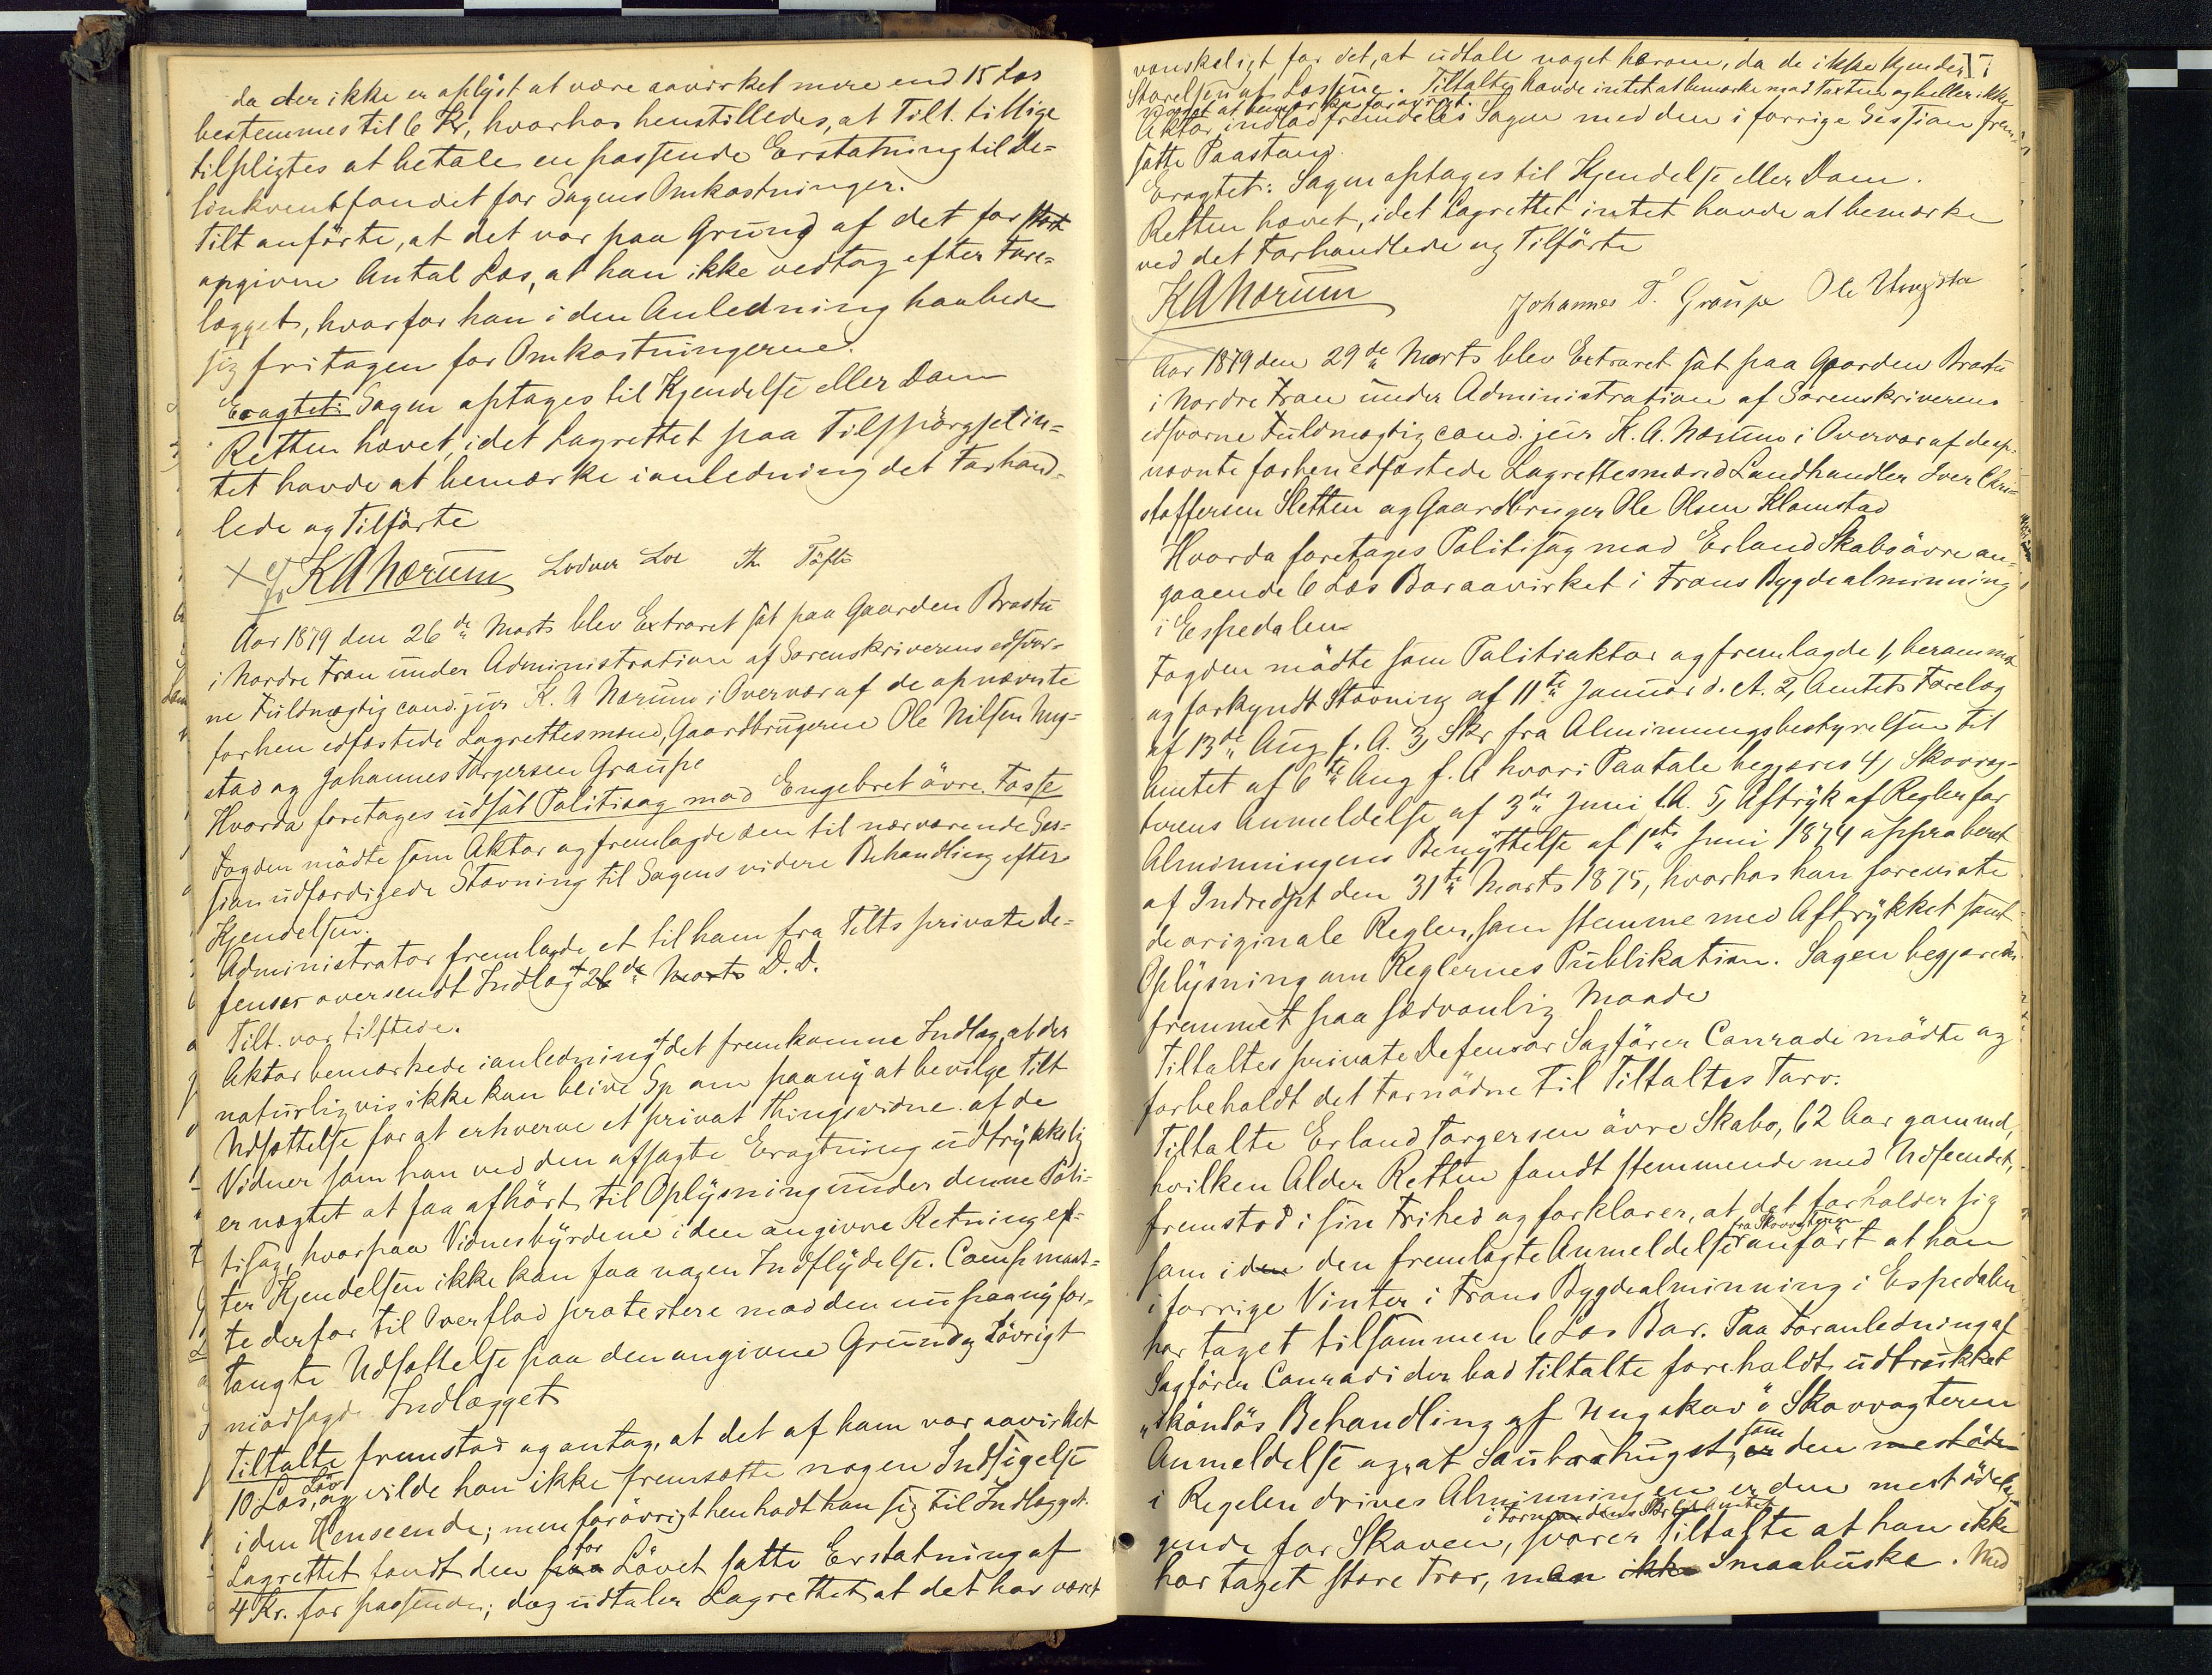 da der ikke er oplyst at være aavirket mere end 15 Læs
bestemmes til 6 Kr, hvorhos henstilledes, at Tilt. tillige
tilpligtes at betale en passende Erstatning til De-
linkventfondet for Sagens Omkostninger.
Tilt anførte, at det var paa Grund af det for stort
opgivne Antal Læs, at han ikke vedtog efter Fore-
lægget, hvorfor han i den Anledning haabede
sig fritagen for Omkostningerne.
Eragtet: Sagen optages til Kjendelse eller Dom
Retten hævet, idet Lagrettet paa Tilspørgsel in-
tet havde at bemærke i anledning det Forhand-
lede og Tilførte
K A Nærum Lodver Lo Th Tøfte
Aar 1879 den 26de Marts blev Extraret sat paa Gaarden Brastu
i Nordre Fron under Administration af Sorenskriverens edsvor-
ne Fuldmægtig cand. jur K. A Nærum i Overvær af de opnævnte
forhen edfæstede Lagrettesmænd, Gaardbrugerne Ole Nilsen Ung-
stad og Johannes Torgersen Graupe
Hvorda foretages udsat Politisag mod Engebret øvre Fosse
Fogden mødte som Aktor og fremlagde den til nærværende Ses-
sion udfærdigede Stævning til Sagens videre Behandling efter
Kjendelsen.
Administrator fremlagde et til ham fra Tilts private De-
fensor oversendt Indlæg 26de Marts D. D.
Tilt. var tilstede.
Aktor bemærkede i anledning af det fremkomne Indlæg, at der
naturligvis ikke kan blive Sp om paany at bevilge Tilt
Udsættelse for at erhverve et privat Thingsvidne af de
Vidner som han ved den afsagte Eragtning udtrykkelig
er nægtet at faa afhørt til Oplysning under denne Poli-
tisag, hvorpaa Vidnesbyrdene i den angivne Retning ef-
ter Kjendelsen ikke kan faa nogen Indflydelse. Comp maat-
te derfor til Overflod protestere mod den nu paany for-
langte Udsættelse paa den angivne Grund og iøvrigt
modsagde Indlægget
Tiltalte fremstod og antog, at det af ham var aavirket
10 Læs Løv, og vilde han ikke fremsætte nogen Indsigelse
i den Henseende; men forøvrigt henholdt han sig til Indlægget.
Lagrettet fandt den paa for Løvet satte Erstatning af
4 Kr. for passende; dog udtaler Lagrettet at det har været
vanskeligt for det, at udtale noget herom, da de ikke kjender
Størelsen af Læssene. Tiltalte havde intet at bemærke mod Taxten og heller ikke
noget at bemærke forøvrigt.
Aktor indlod fremdeles Sagen med den i forrige Session frem-
satte Paastand.
Eragtet: Sagen optages til Kjendelse eller Dom.
Retten hævet, idet Lagrettet intet havde at bemærke
ved det Forhandlede og Tilførte
K A Nærum Johannes T. Graupe Ole Ungsta
Aar 1879 den 29de Marts blev Extraret sat paa Gaarden Brastu
i Nordre Fron under Administration af Sorenskriverens
edsvorne Fuldmægtig cand. jur K. A. Nærum i Overvær af de op-
nævnte forhen edfæstede Lagrettesmænd Landhandler Iver Chri-
stoffersen Sletten og Gaardbruger Ole Olsen Klomstad
Hvorda foretages Politisag mod Erland Skabo øvre an-
gaaende 6 Læs Bar aavirket i Frons Bygdealminning
i Espedalen
Fogden mødte som Politiaktor og fremlagde 1, berammet
og forkyndt Stævning af 11te Januar d. A. 2, Amtets Forelæg
af 13de Aug f. A. 3, Skr fra Alminningsbestyrelsen til
Amtet af 6te Aug f. A hvori Paatale begjæres 4, Skovvog-
terens Anmeldelse af 3de Juni f.A. 5, Aftryk af Regler for
Almindingens Benyttelse af 1ste Juni 1874 approberet
af Indredpt den 31te Marts 1875, hvorhos han foreviste
de originale Regler, som stemme med Aftrykket samt
Oplysning om Reglernes Publikation. Sagen begjæredes
fremmet paa sædvanlig Maade
Tiltaltes private Defensor Sagfører Conradi mødte og
forbeholdt det fornødne til Tiltaltes Tarv.
Tiltalte Erland Torgersen øvre Skabo, 62 Aar gammel,
hvilken Alder Retten fandt stemmende med Udseendet,
fremstod i sin Frihed og forklarer, at det forholder sig
som i den den fremlagte Anmeldelse fra Skovvogteren anført at han
i forrige Vinter i Frons Bygdealminning i Espedalen
har taget tilsammen 6 Læs Bar. Paa Foranledning af
Sagfører Conradi der bad Tiltalte foreholdt udtrukket
"skønløs Behandling af Ungskov" i Skovvogterens
Anmeldelse og, at Saubarhugst, er som den mest øde
i Regelen drives Alminningen er den mest ødelæg-
gende for Skoven, i Formandens Skr til Amtet svarer Tiltalte at han ikke
har taget store Træer, men ikke Smaabuske. Med